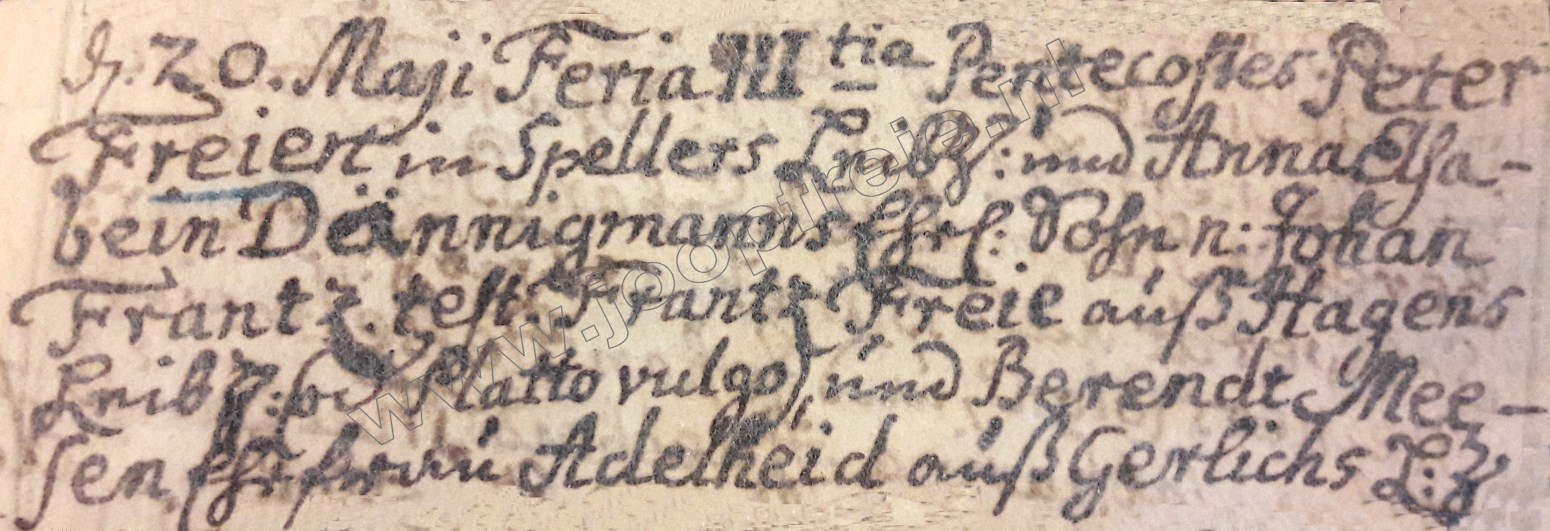 d. 20. Maji Feria III tia Pentecostes Peter
Freiert in Spellers Leibz: und Anna Elsa-
bein Dännigmanns Ehel: Sohn n: Johan
Frantz. test. Frantz Freie auß Hagens
Leibz: Platto vulgo) und Berendt Mee-
sen Ehefrau Adelheid auß Gerlichs L:z
www.jooptreie.nl